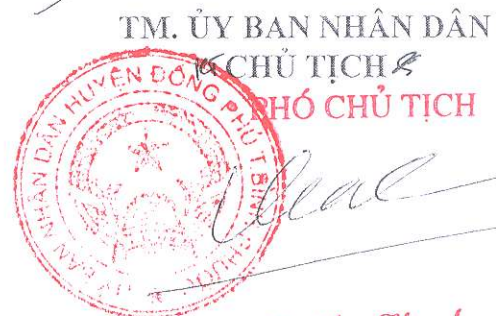 TM. ỦY BAN NHÂN DÂN
KT. CHỦ TỊCH
PHÓ CHỦ TỊCH
ỦY BAN NHÂN DÂN HUYỆN ĐỒNG PHÚ T. BÌNH PHƯỚC